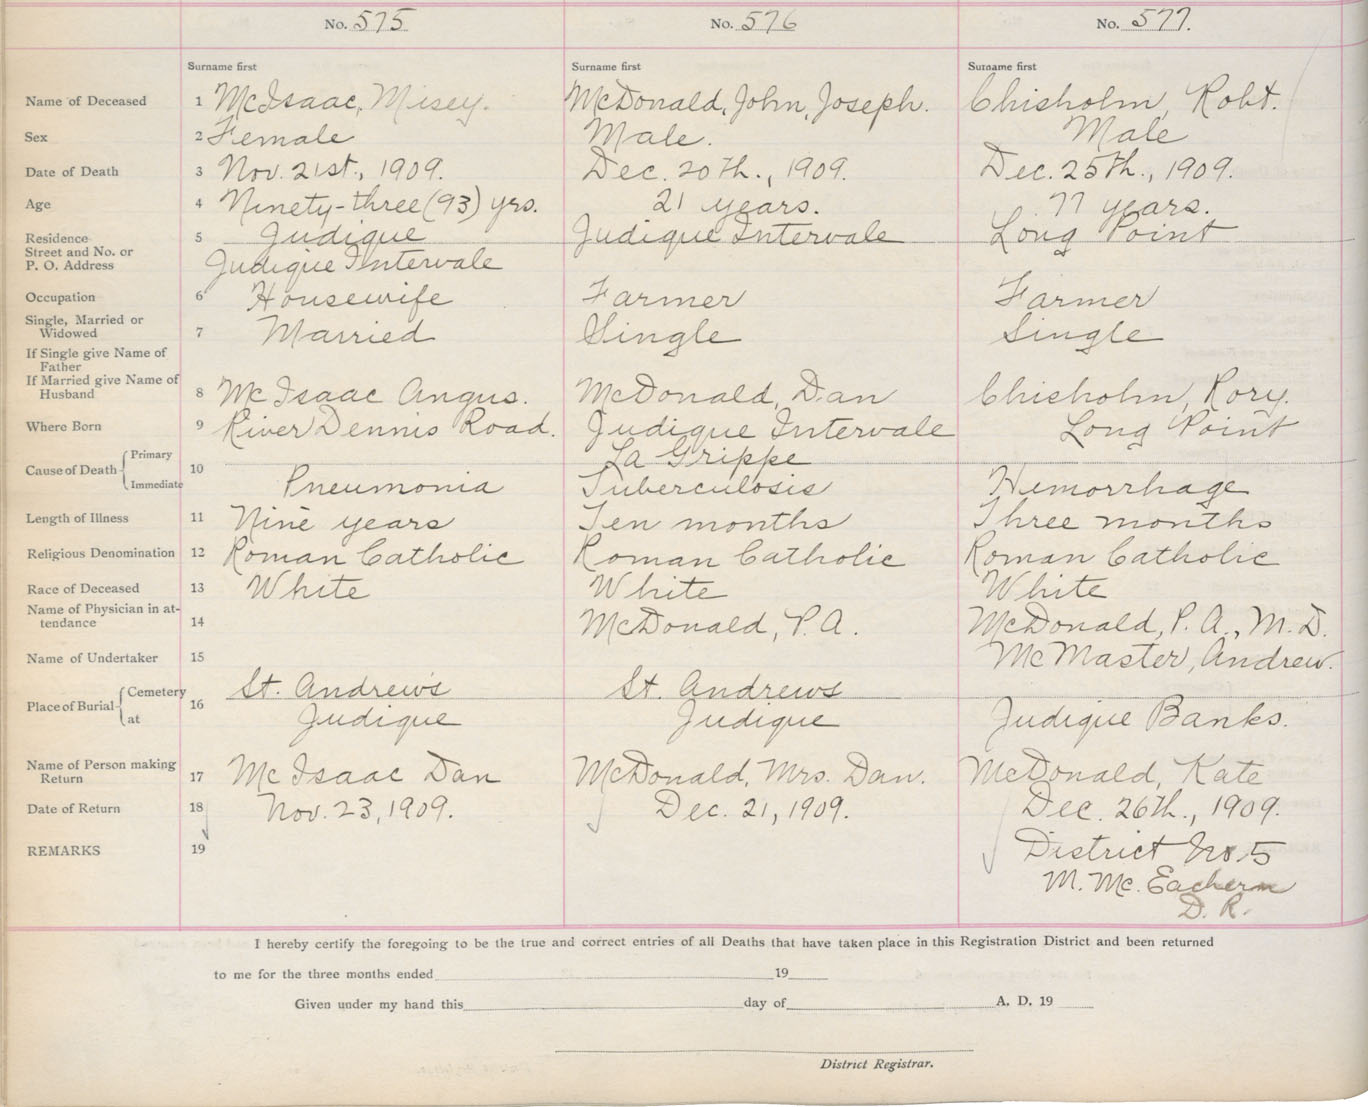 No. 575 No. 576 No. 577.
Surname first Surname first Surname first
Name of Deceased 1 McIsaac, Misey. McDonald, John, Joseph. Chisholm, Robt.
Sex 2 Female Male. Male
Date of Death 3 Nov. 21st., 1909. Dec. 20th., 1909. Dec. 25th., 1909.
Age 4 Ninety-three (93) yrs. 21 years. 77 years.
Residence 5 Judique Judique Intervale Long Point
Street and No. or
P. O. Address Judique Intervale
Occupation 6 Housewife Farmer Farmer
Single, Married or
Widowed 7 Married Single Single
If Single give Name of
Father
If Married give Name of
Husband 8 McIsaac Angus. McDonald, Dan Chisholm, Rory.
Where Born 9 River Dennis Road. Judique Intervale Long Point
Primary La Grippe
Cause of Death 10
Immediate Pneumonia Tuberculosis Hemorrhage
Length of Illness 11 Nine years Ten months Three months
Religious Denomination 12 Roman Catholic Roman Catholic Roman Catholic
Race of Deceased 13 White White White
Name of Physician in at-
tendance 14 McDonald, P. A. McDonald, P. A., M. D.
Name of Undertaker 15 McMaster, Andrew.
Cemetery St. Andrew's St. Andrews
Place of Burial 16
at Judique Judique Judique Banks.
Name of Person making
Return 17 McIsaac Dan McDonald, Mrs. Dan. McDonald, Kate
Date of Return 18 Nov. 23, 1909. Dec. 21, 1909. Dec. 26th., 1909.
REMARKS 19 District No. 5
M. McEachern
D. R.
I hereby certify the foregoing to be the true and correct entries of all Deaths that have taken place in this Registration District and been returned
to me for the three months ended 19
Given under my hand this day of A. D. 19
District Registrar.